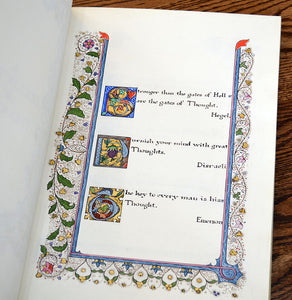 Stronger than the gates of Hell
are the gates of Thought.
Hegel.
Nourish your mind with great
Thoughts.
Disraeli
The key to every man is his
Thought.
Emerson